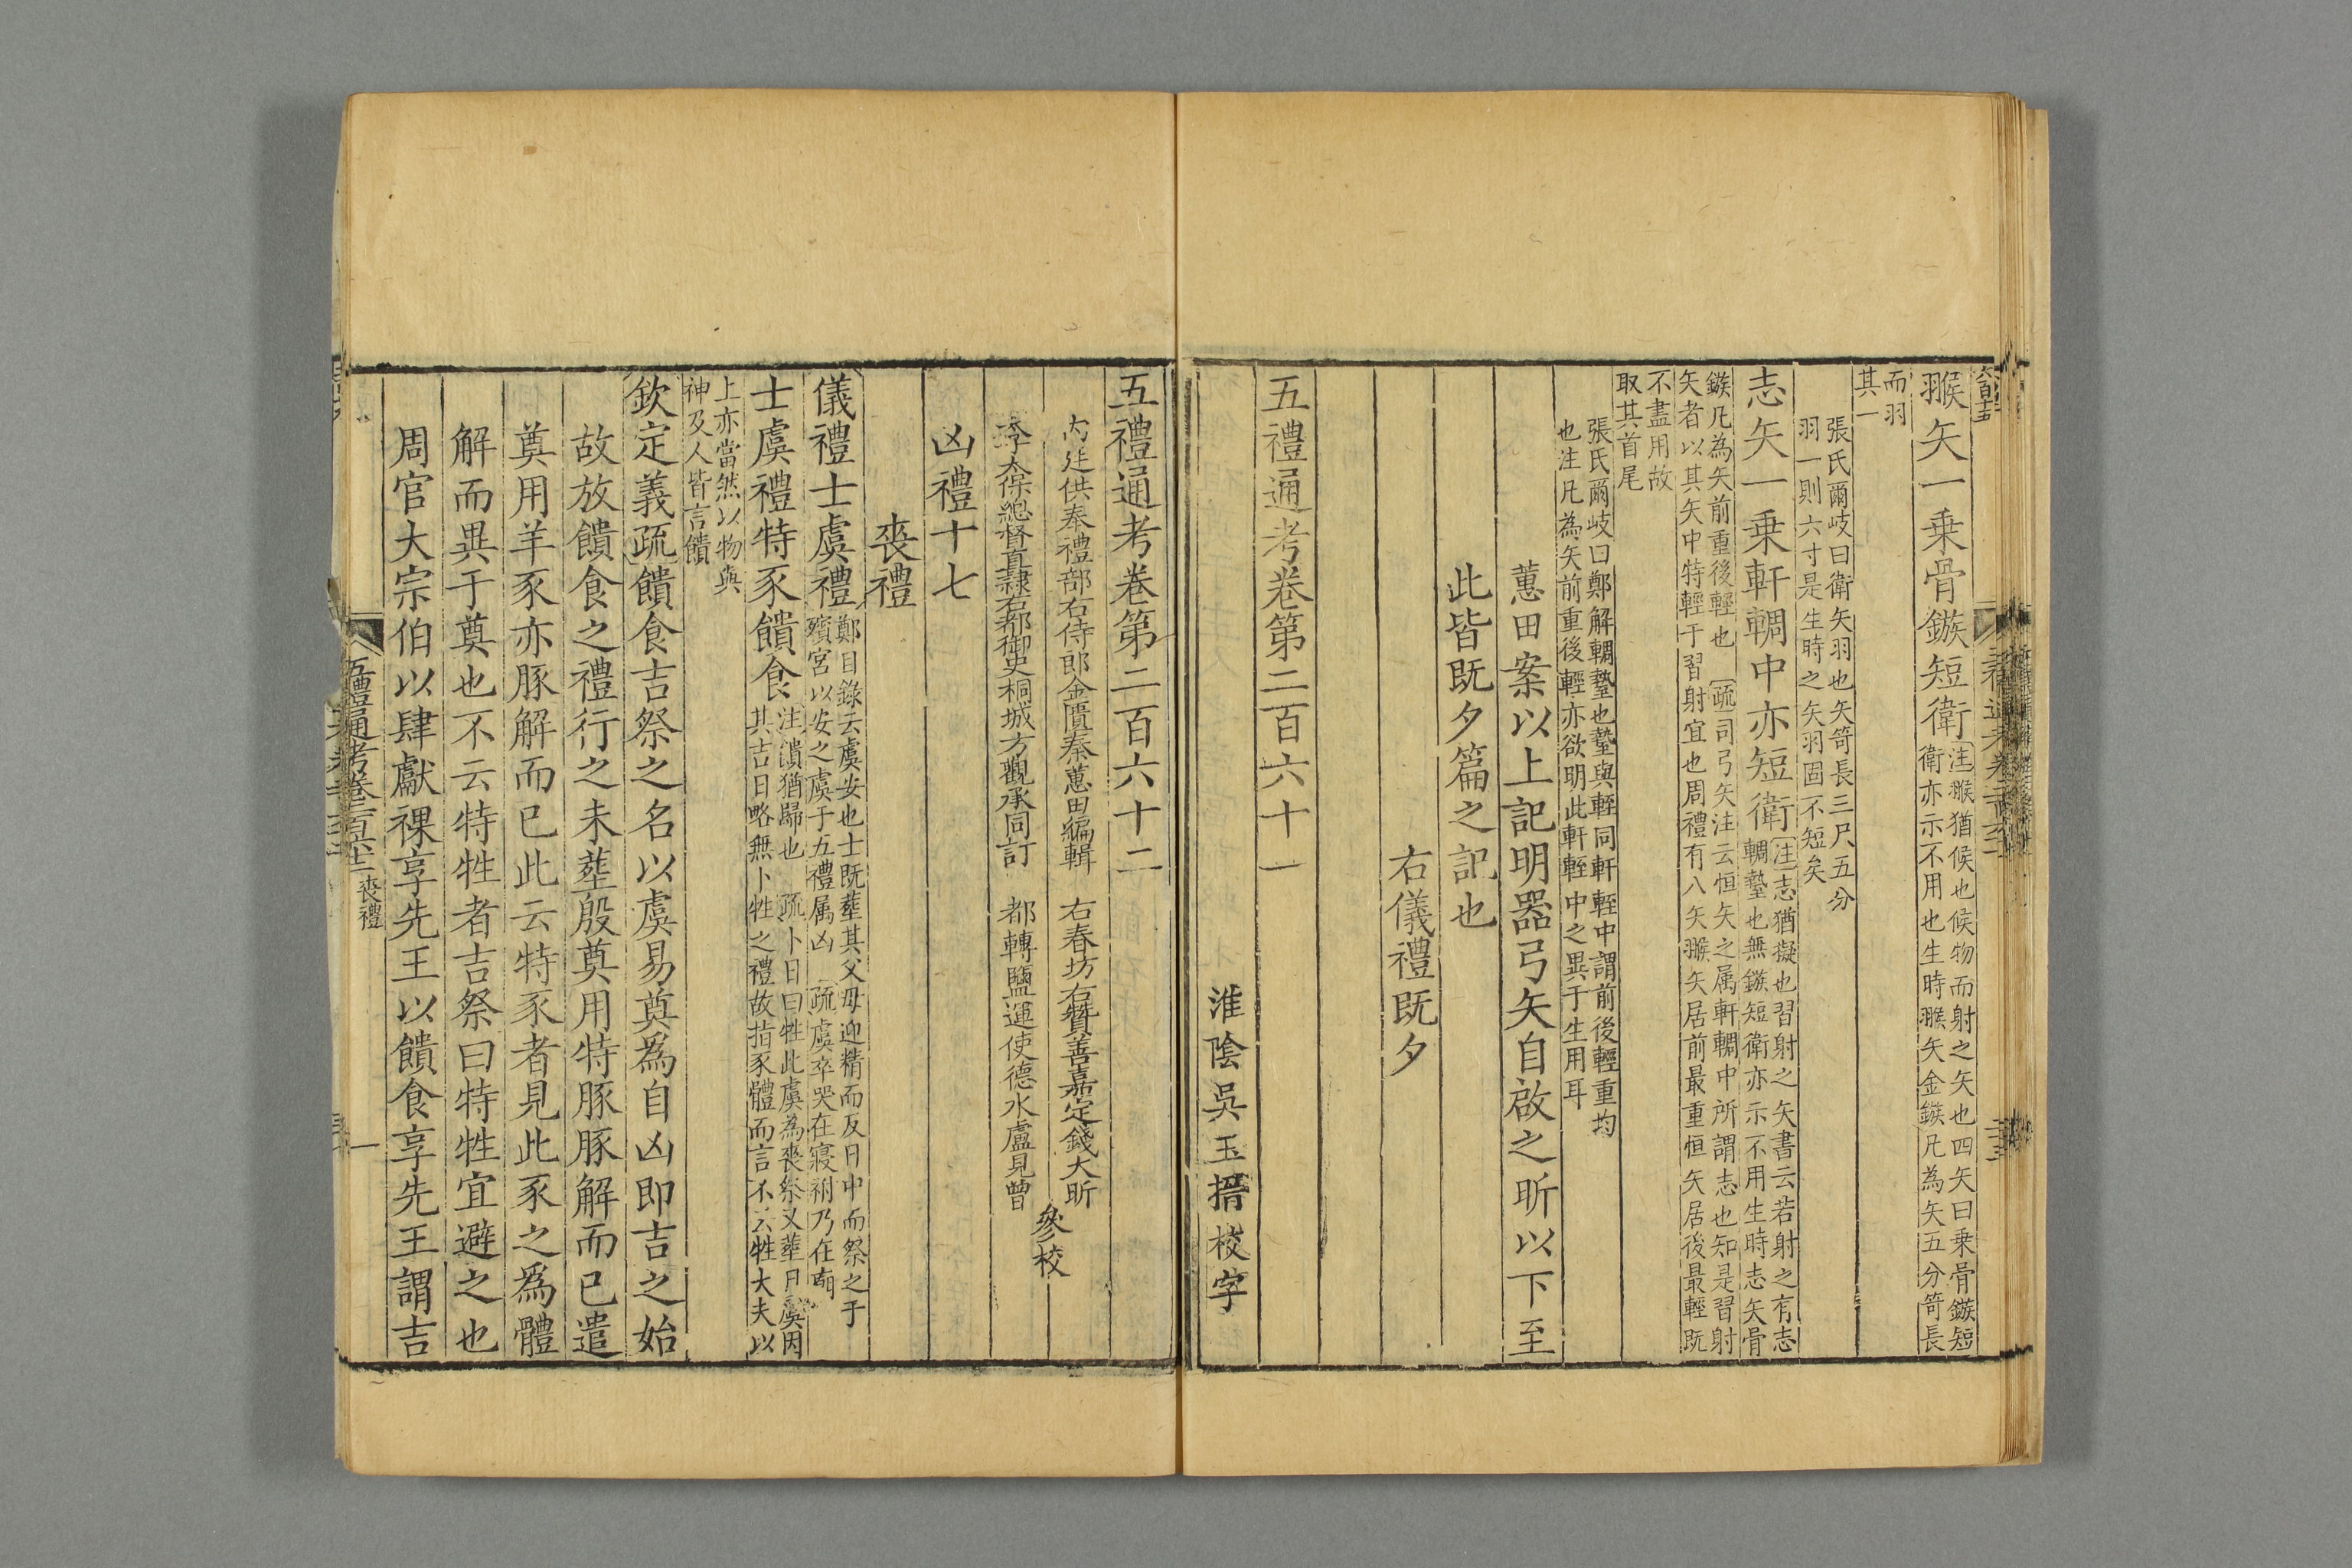 猴矢一乗骨鏃短衛
注猴猶候也候物而射之矢也四矢曰乗骨鏃短
衛亦示不用也生時猴矢金鏃凡為矢五分笴長
而羽
其一
張氏爾岐曰衛矢羽也矢笴長三尺五分
羽一則六寸是生時之矢羽固不短矣
志矢一乗軒輖中亦短衛
注志猶擬也習射之矢書云若射之有志
輖摯也無鏃短衛亦示不用生時志矢骨
鏃凡為矢前重後輕也 疏司弓矢注云恒矢之属軒輖中所謂志也知是習射
矢者以其矢中特輕于習射宜也周禮有八矢猴矢居前最重恒矢居後最輕既
不盡用故
取其首尾
張氏爾岐曰鄭解輖摯也摯與輊同軒輊中謂前後輕重均
也注凡為矢前重後輕亦欲明此軒輊中之異于生用耳
蕙田案以上記明器弓矢自啟之昕以下至
此皆既夕篇之記也
右儀禮既夕
五禮通考卷第二百六十一
淮陰吳玉搢校字
五禮通考卷第二百六十二
内廷供奉禮部右侍郎金匱秦蕙田編輯 右春坊右贊善嘉定錢大昕
李太保總督直隷右都御史桐城方觀承同訂 都轉鹽運使德水盧見曾
參校
凶禮十七
喪禮
儀禮士虞禮
鄭目錄云虞安也士既葬其父母迎精而反日中而祭之于
殯宮以安之虞于五禮属凶 疏虞卒哭在寢祔乃在廟
士虞禮特豕饋食
注饋猶歸也 疏卜日曰牲此虞為喪祭又葬日虞因
其吉日略無卜牲之禮故指豕體而言不云牲大夫以
上亦當然以物與
神及人皆言饋
欽定義疏饋食吉祭之名以虞易奠為自凶即吉之始
故放饋食之禮行之未葬殷奠用特豚豚解而已遣
奠用羊豕亦豚解而已此云特豕者見此豕之為體
解而異于奠也不云特牲者吉祭曰特牲宜避之也
周官大宗伯以肆獻祼享先王以饋食享先王謂吉
五禮通考卷二百六十二 喪禮 一